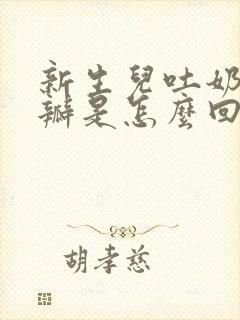 新生兒吐奶
瓣是怎麼回
胡孝慈